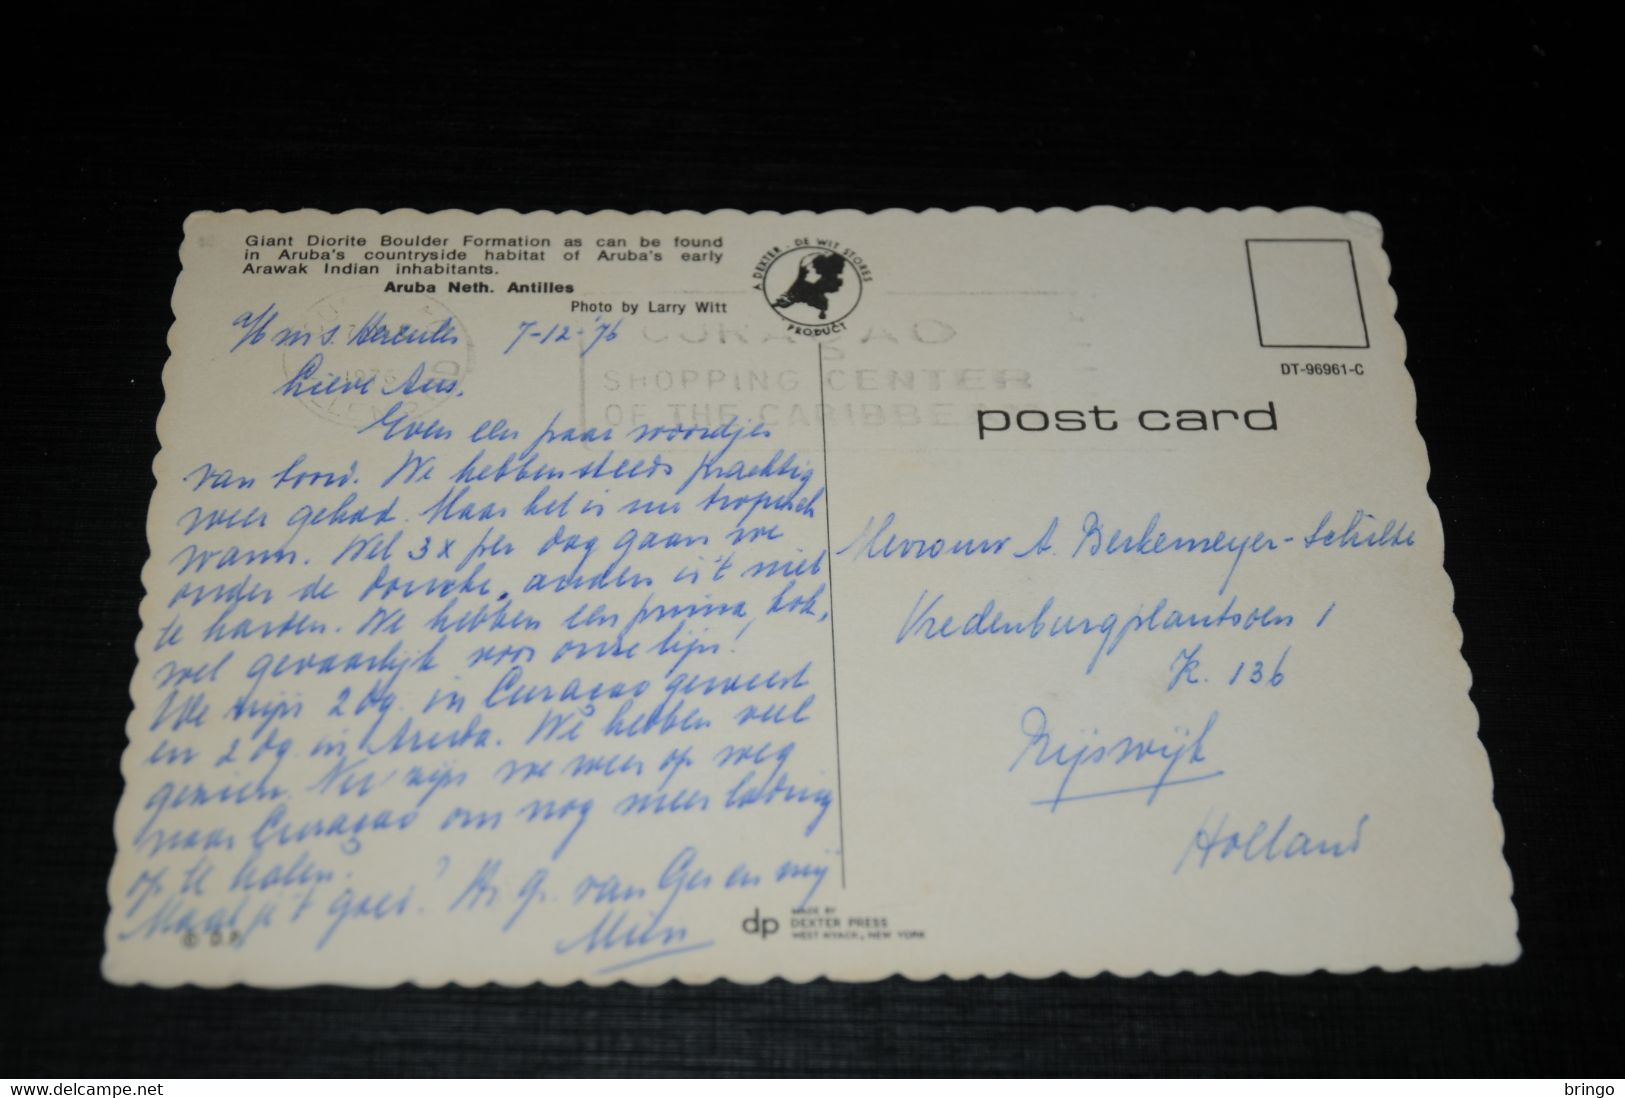 Giant Diorite Boulder Formation as can be found
in Aruba's countryside habitat of Aruba's early
Arawak Indian inhabitants.
Aruba Neth. Antilles
Photo by Larry Witt
A DEXTER - DE WIT STORES
PRODUCT
CURAÇAO
SHOPPING CENTER
OF THE CARIBBEAN
a/b m.s. Hercules 7-12-'76
Lieve Aus.
Even een paar woordjes
van boord. We hebben steeds prachtig
weer gehad. Maar het is nu tropisch
warm. Wel 3x per dag gaan we
onder de douche, anders is 't niet
te harden. We hebben een prima kok,
wel gevaarlijk voor onze lijn!
We zijn 2 dg. in Curaçao geweest
en 2 dg. in Aruba. We hebben veel
gezien. Nu zijn we weer op weg
naar Curaçao om nog meer lading
op te halen.
Maak je 't goed? Hr. gr. van Ger en mij
Mien
© D.P.
dp MADE BY
DEXTER PRESS
WEST NYACK, NEW YORK
DT-96961-C
post card
Mevrouw A. Berkemeyer-Schilte
Vredenburgplantsoen 1
K. 136
Rijswijk
Holland
bringo